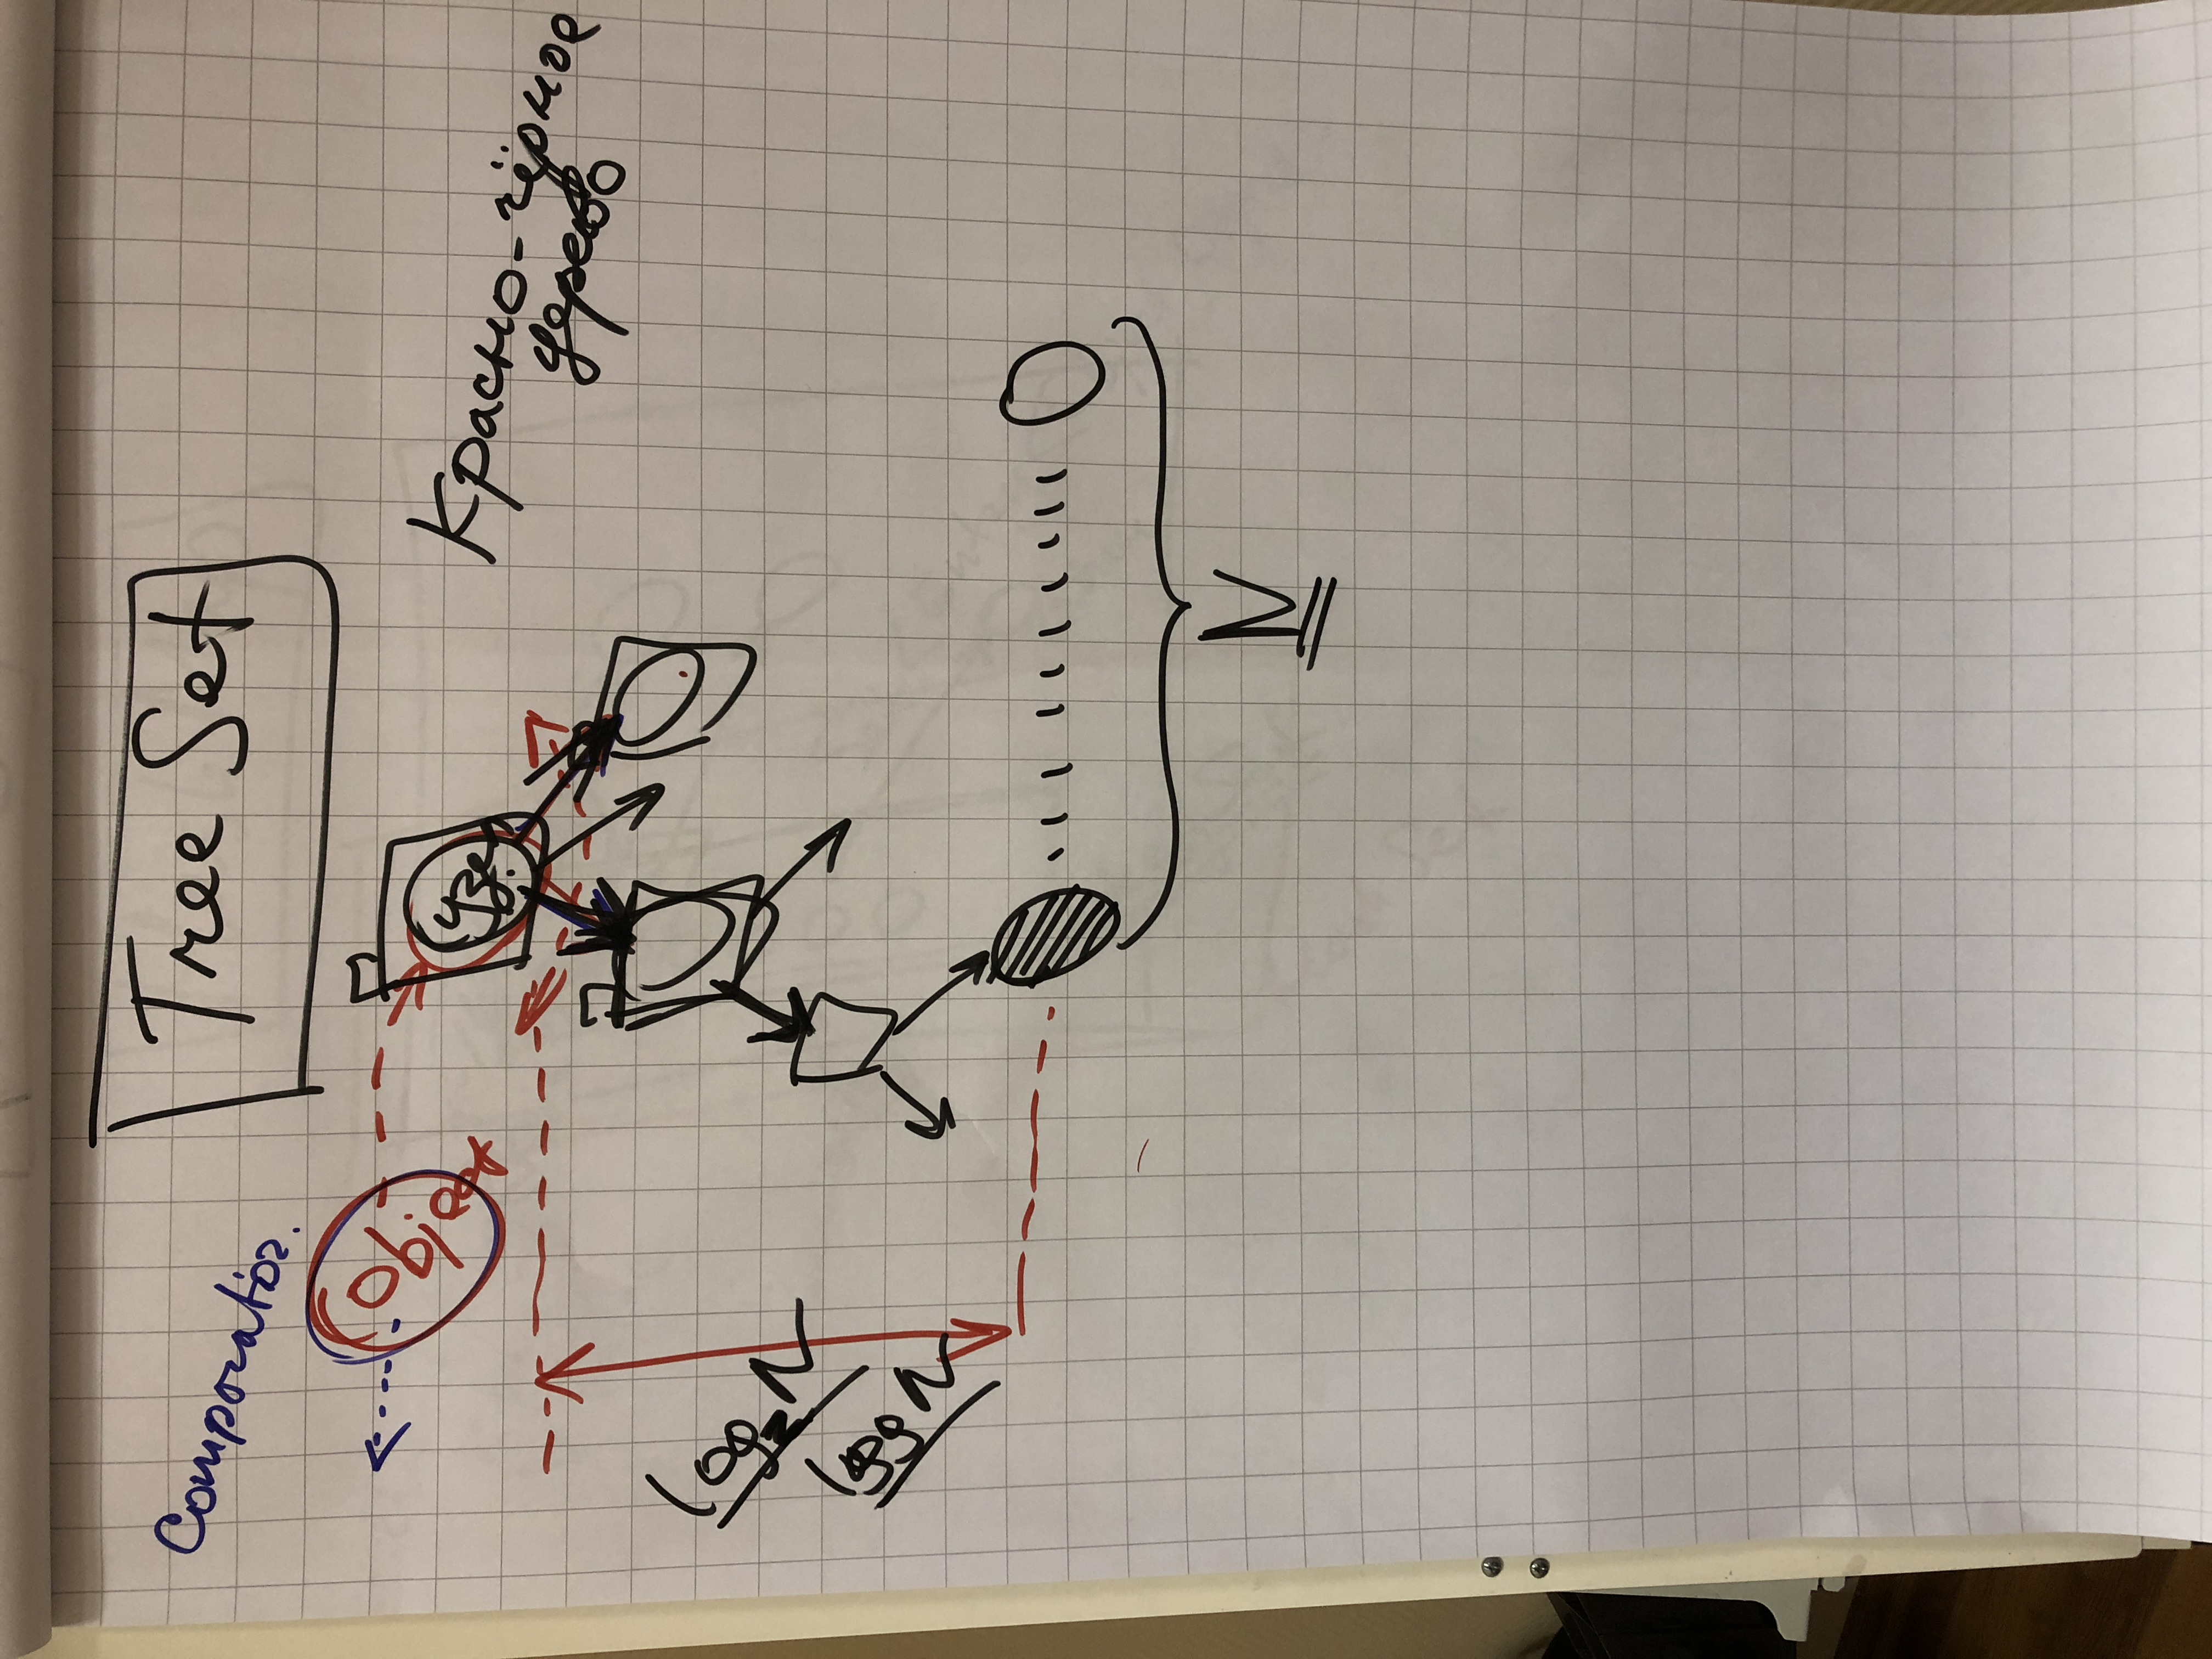 Tree Set
Comporator.
Object
Узел
Красно-чёрное
дерево
log₂N
log N
N